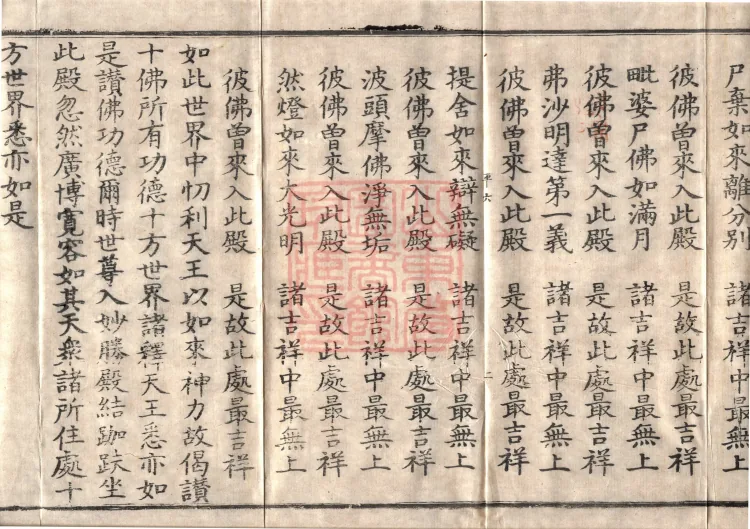 尸棄如來離分別 諸吉祥中最無上
彼佛曾來入此殿 是故此處最吉祥
毗婆尸佛如滿月 諸吉祥中最無上
彼佛曾來入此殿 是故此處最吉祥
弗沙明達第一義 諸吉祥中最無上
彼佛曾來入此殿 是故此處最吉祥
提舍如來辯無礙 諸吉祥中最無上
彼佛曾來入此殿 是故此處最吉祥
波頭摩佛淨無垢 諸吉祥中最無上
彼佛曾來入此殿 是故此處最吉祥
然燈如來大光明 諸吉祥中最無上
彼佛曾來入此殿 是故此處最吉祥
如此世界中忉利天王以如來神力故偈讚
十佛所有功德十方世界諸釋天王悉亦如
是讚佛功德爾時世尊入妙勝殿結跏趺坐
此殿忽然廣博寬容如其天衆諸所住處十
方世界悉亦如是